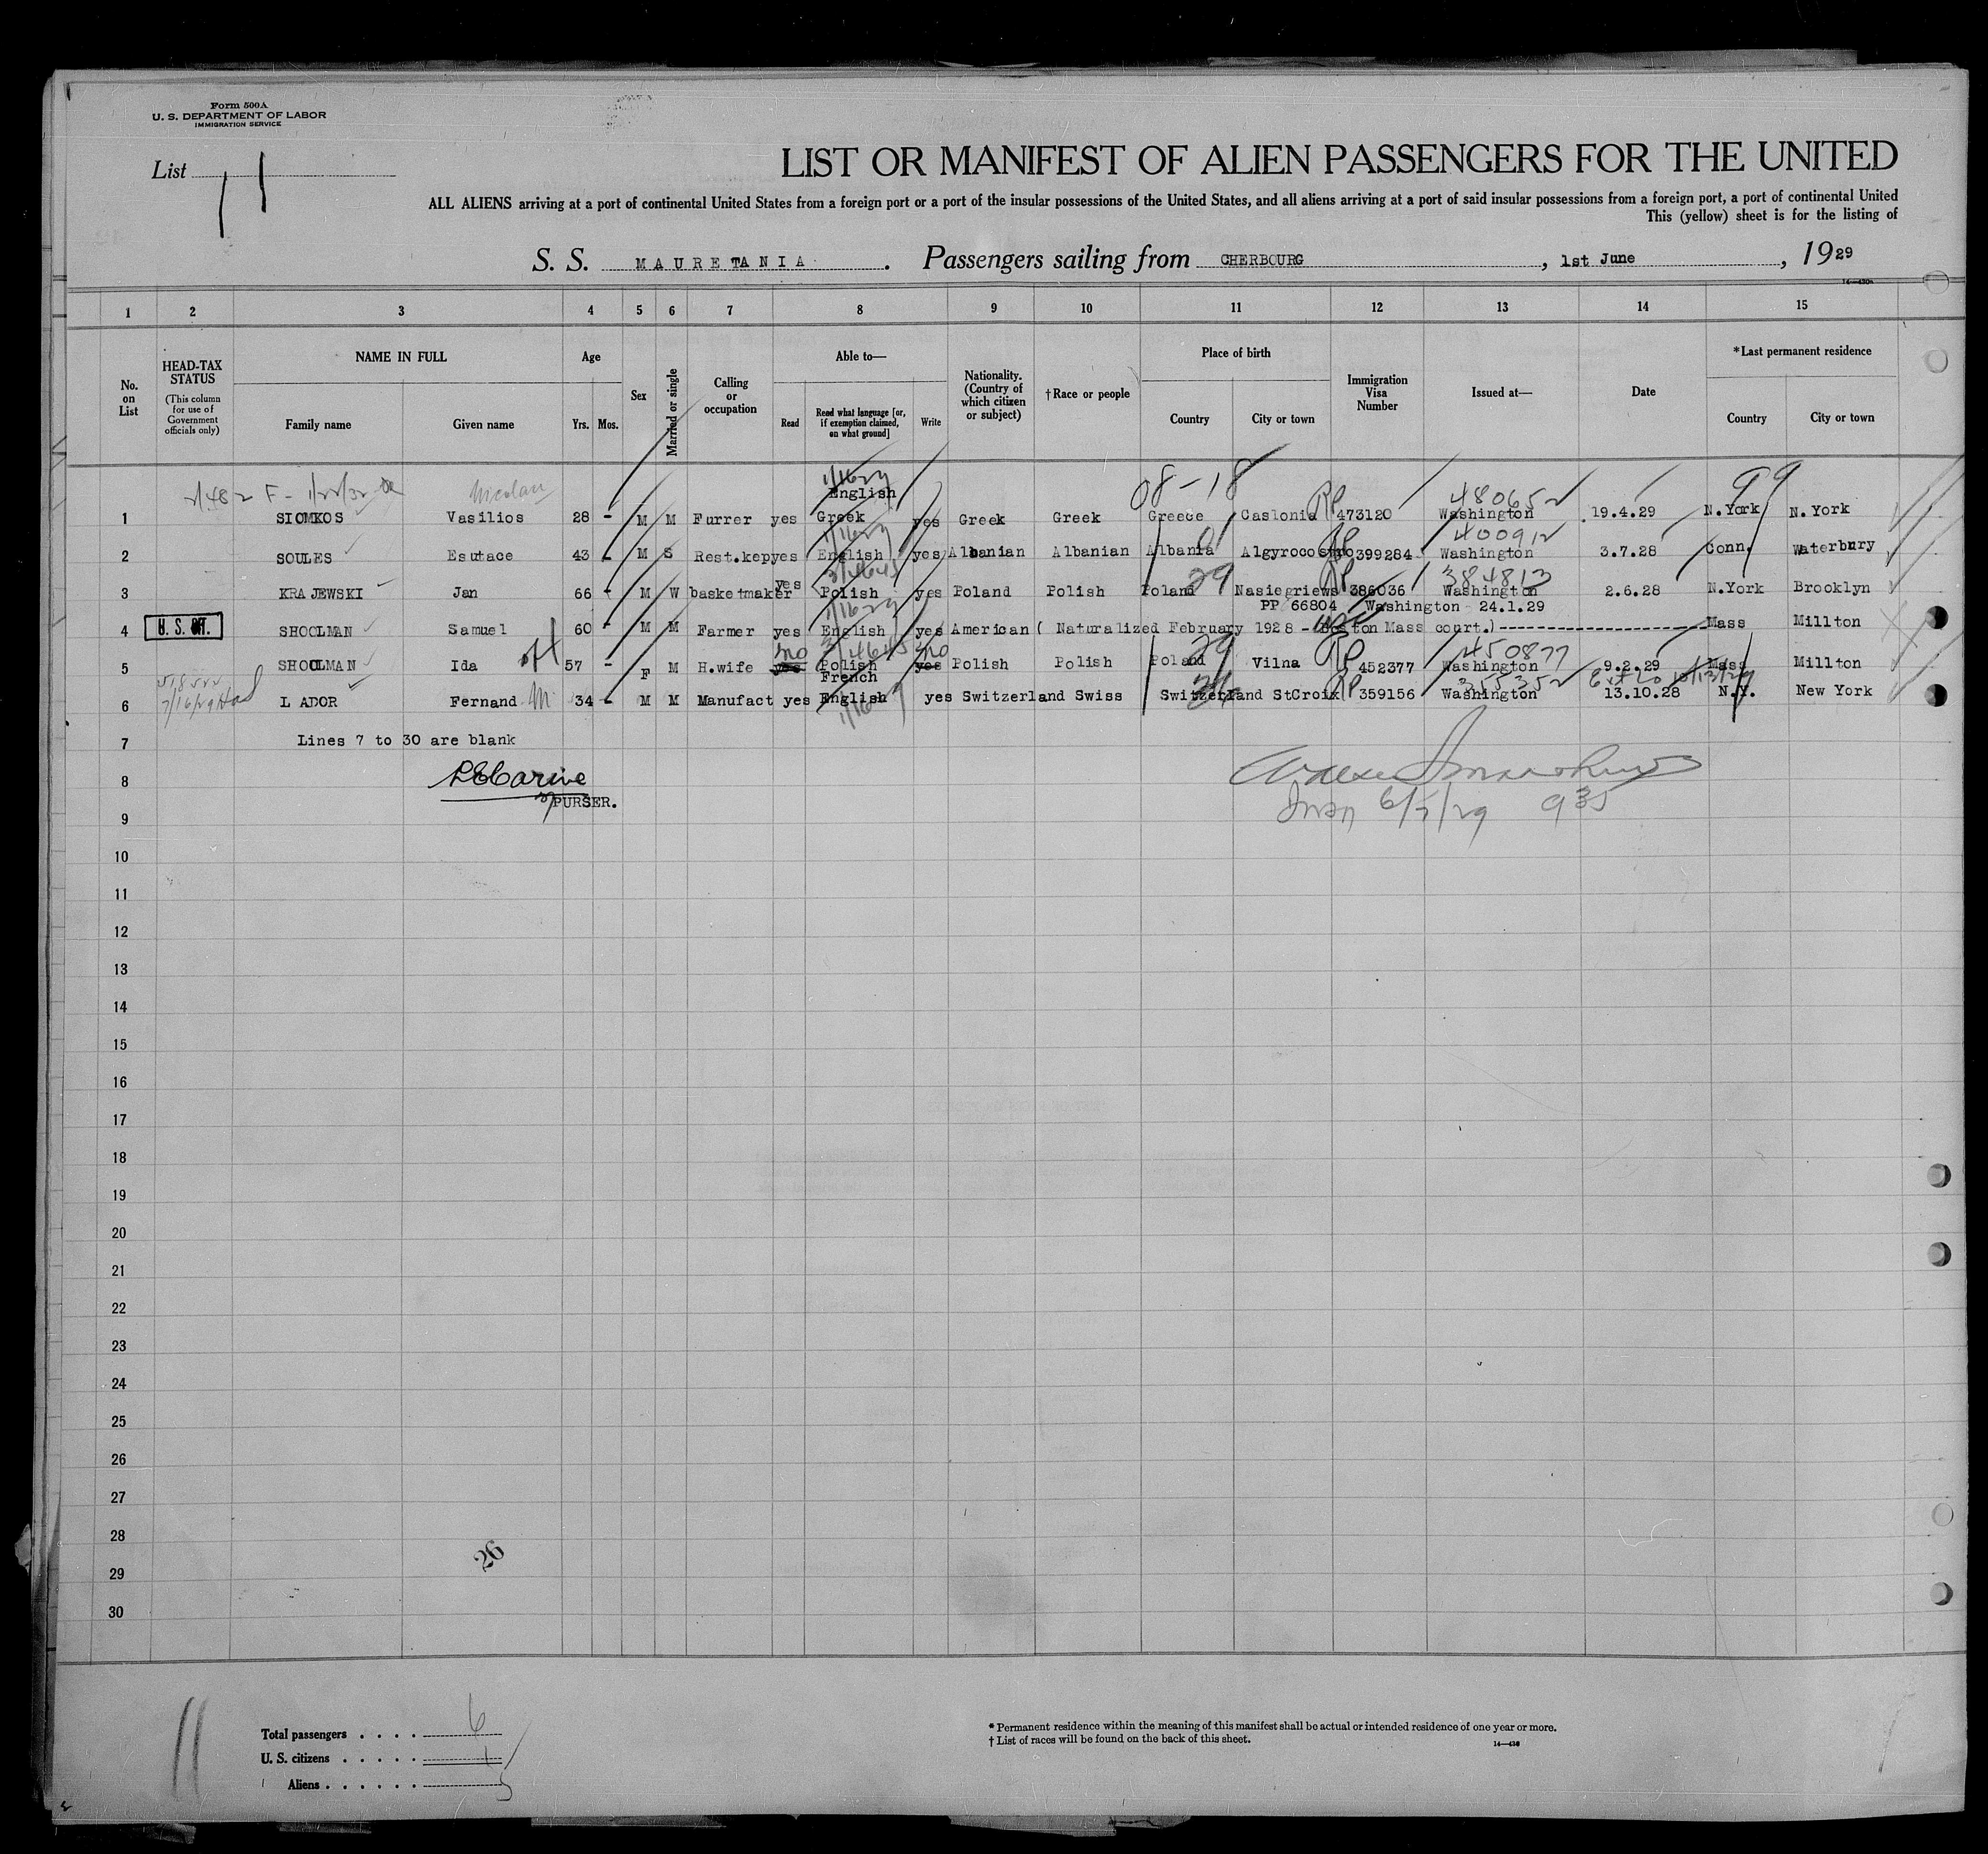 Form 500A
U. S. DEPARTMENT OF LABOR
IMMIGRATION SERVICE
List 11
LIST OR MANIFEST OF ALIEN PASSENGERS FOR THE UNITED
ALL ALIENS arriving at a port of continental United States from a foreign port or a port of the insular possessions of the United States, and all aliens arriving at a port of said insular possessions from a foreign port, a port of continental United
This (yellow) sheet is for the listing of
S. S. MAURETANIA. Passengers sailing from CHERBOURG, 1st June, 1929
1 2 3 4 5 6 7 8 9 10 11 12 13 14 15
No. on List
HEAD-TAX STATUS
(This column for use of Government officials only)
NAME IN FULL
Family name
Given name
Age
Yrs.
Mos.
Sex
Married or single
Calling or occupation
Able to—
Read
Read what language [or, if exemption claimed, on what ground]
Write
Nationality. (Country of which citizen or subject)
†Race or people
Place of birth
Country
City or town
Immigration Visa Number
Issued at—
Date
*Last permanent residence
Country
City or town
2/482 F - 1/22/32 Nicolau 1/1629 08-18 480652 99
English
1 SIOMKOS Vasilios 28 - M M Furrer yes Greek yes Greek Greek Greece Caslonia RP 473120 Washington 19.4.29 N.York N.York
1/1629 01 400912
2 SOULES Esutace 43 - M S Rest.kep yes English yes Albanian Albanian Albania Algyrocostro RP 399284 Washington 3.7.28 Conn. Waterbury
2/4645 29 384813
3 KRAJEWSKI Jan 66 - M W basketmaker yes Polish yes Poland Polish Poland Nasiegriews RP 386036 Washington 2.6.28 N.York Brooklyn
1/1629 PP 66804 Washington 24.1.29
4 U. S. CIT. SHOOLMAN Samuel 60 - M M Farmer yes English yes American ( Naturalized February 1928 - Boston Mass court.)---- Mass Millton
no 2/4645 no 29 450877
5 SHOOLMAN Ida 57 - F M H.wife yes Polish yes Polish Polish Poland Vilna RP 452377 Washington 9.2.29 Mass Millton
French 355352
6 LADOR Fernand M 34 - M M Manufact yes English yes Switzerland Swiss Switzerland StCroix RP 359156 Washington 13.10.28 N.Y. New York
1/1629
7 Lines 7 to 30 are blank
8
PURSER.
9
10
11
12
13
14
15
16
17
18
19
20
21
22
23
24
25
26
27
28
26
29
30
11
Total passengers . . . . 6
U. S. citizens . . . . . 1
Aliens . . . . . . 5
* Permanent residence within the meaning of this manifest shall be actual or intended residence of one year or more.
† List of races will be found on the back of this sheet.
14—430